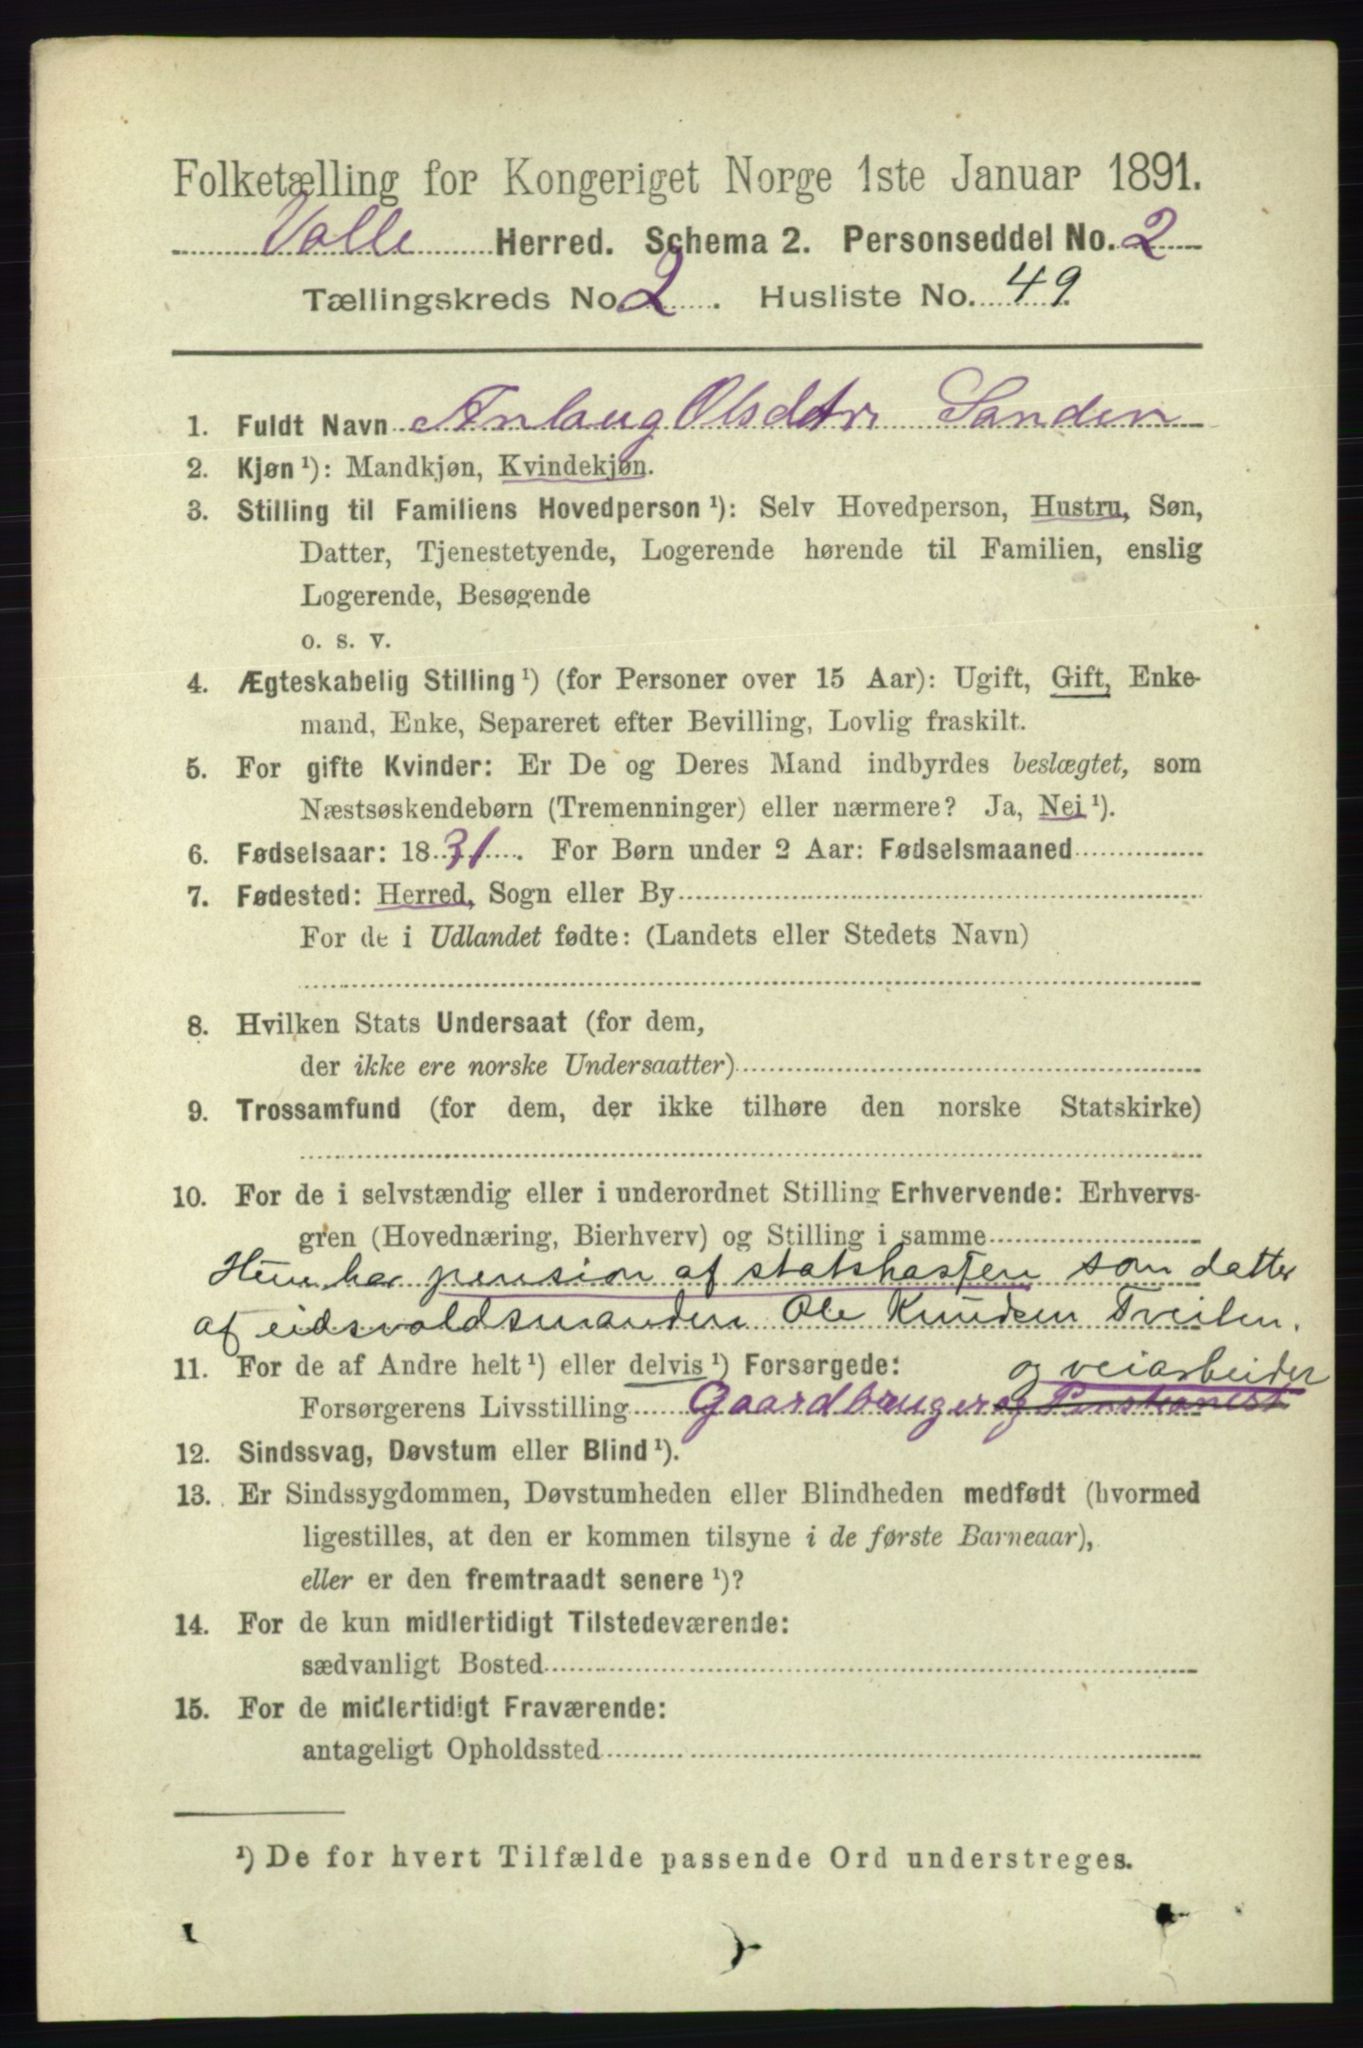 Folketælling for Kongeriget Norge 1ste Januar 1891.
Valle Herred. Schema 2. Personseddel No. 2
Tællingskreds No. 2. Husliste No. 49.
1. Fuldt Navn Anlaug Olsdatr Sanden
2. Kjøn ¹): Mandkjøn, Kvindekjøn.
3. Stilling til Familiens Hovedperson ¹): Selv Hovedperson, Hustru, Søn,
Datter, Tjenestetyende, Logerende hørende til Familien, enslig
Logerende, Besøgende
o. s. v.
4. Ægteskabelig Stilling ¹) (for Personer over 15 Aar): Ugift, Gift, Enke-
mand, Enke, Separeret efter Bevilling, Lovlig fraskilt.
5. For gifte Kvinder: Er De og Deres Mand indbyrdes beslægtet, som
Næstsøskendebørn (Tremenninger) eller nærmere? Ja, Nei ¹).
6. Fødselsaar: 1831. For Børn under 2 Aar: Fødselsmaaned
7. Fødested: Herred, Sogn eller By
For de i Udlandet fødte: (Landets eller Stedets Navn)
8. Hvilken Stats Undersaat (for dem,
der ikke ere norske Undersaatter)
9. Trossamfund (for dem, der ikke tilhøre den norske Statskirke)
10. For de i selvstændig eller i underordnet Stilling Erhvervende: Erhvervs-
gren (Hovednæring, Bierhverv) og Stilling i samme
Hun har pension af statskassen som datter
af eidsvoldsmanden Ole Knudsen Tveiten.
11. For de af Andre helt ¹) eller delvis ¹) Forsørgede:
og veiarbeider
Forsørgerens Livsstilling Gaardbruger og Pensionist
12. Sindssvag, Døvstum eller Blind ¹).
13. Er Sindssygdommen, Døvstumheden eller Blindheden medfødt (hvormed
ligestilles, at den er kommen tilsyne i de første Barneaar),
eller er den fremtraadt senere ¹)?
14. For de kun midlertidigt Tilstedeværende:
sædvanligt Bosted
15. For de midlertidigt Fraværende:
antageligt Opholdssted
¹) De for hvert Tilfælde passende Ord understreges.